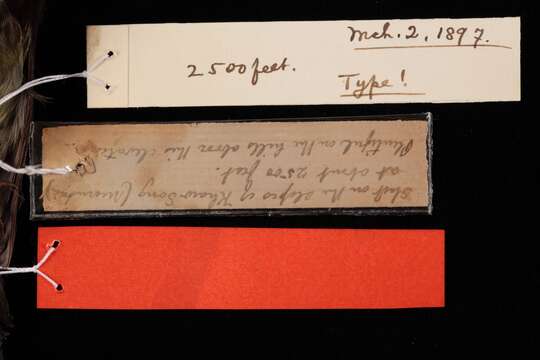 Mch. 2, 1897.
2500 feet.
Type!
Shot on the slopes of Khaw Song (mountain)
at about 2500 feet.
Plentiful on the hills above this elevation.